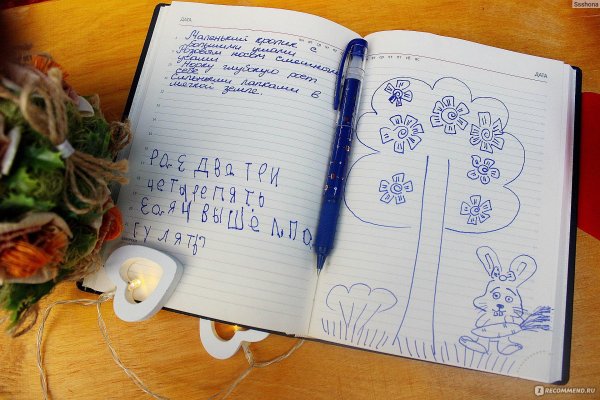 ДАТА
Маленький кролик с
большими ушами
Розовым носом смешными
усами
Норку глубокую роет
себе
лапками в
мягкой земле.
РАЗ ДВА ТРИ
ЧЕТАРЕ ПЯТЬ
ЗАЯЦ ВЫШЕЛ ПО
ГУЛЯТЬ
ДАТА
Ssshona
RECOMMEND.RU